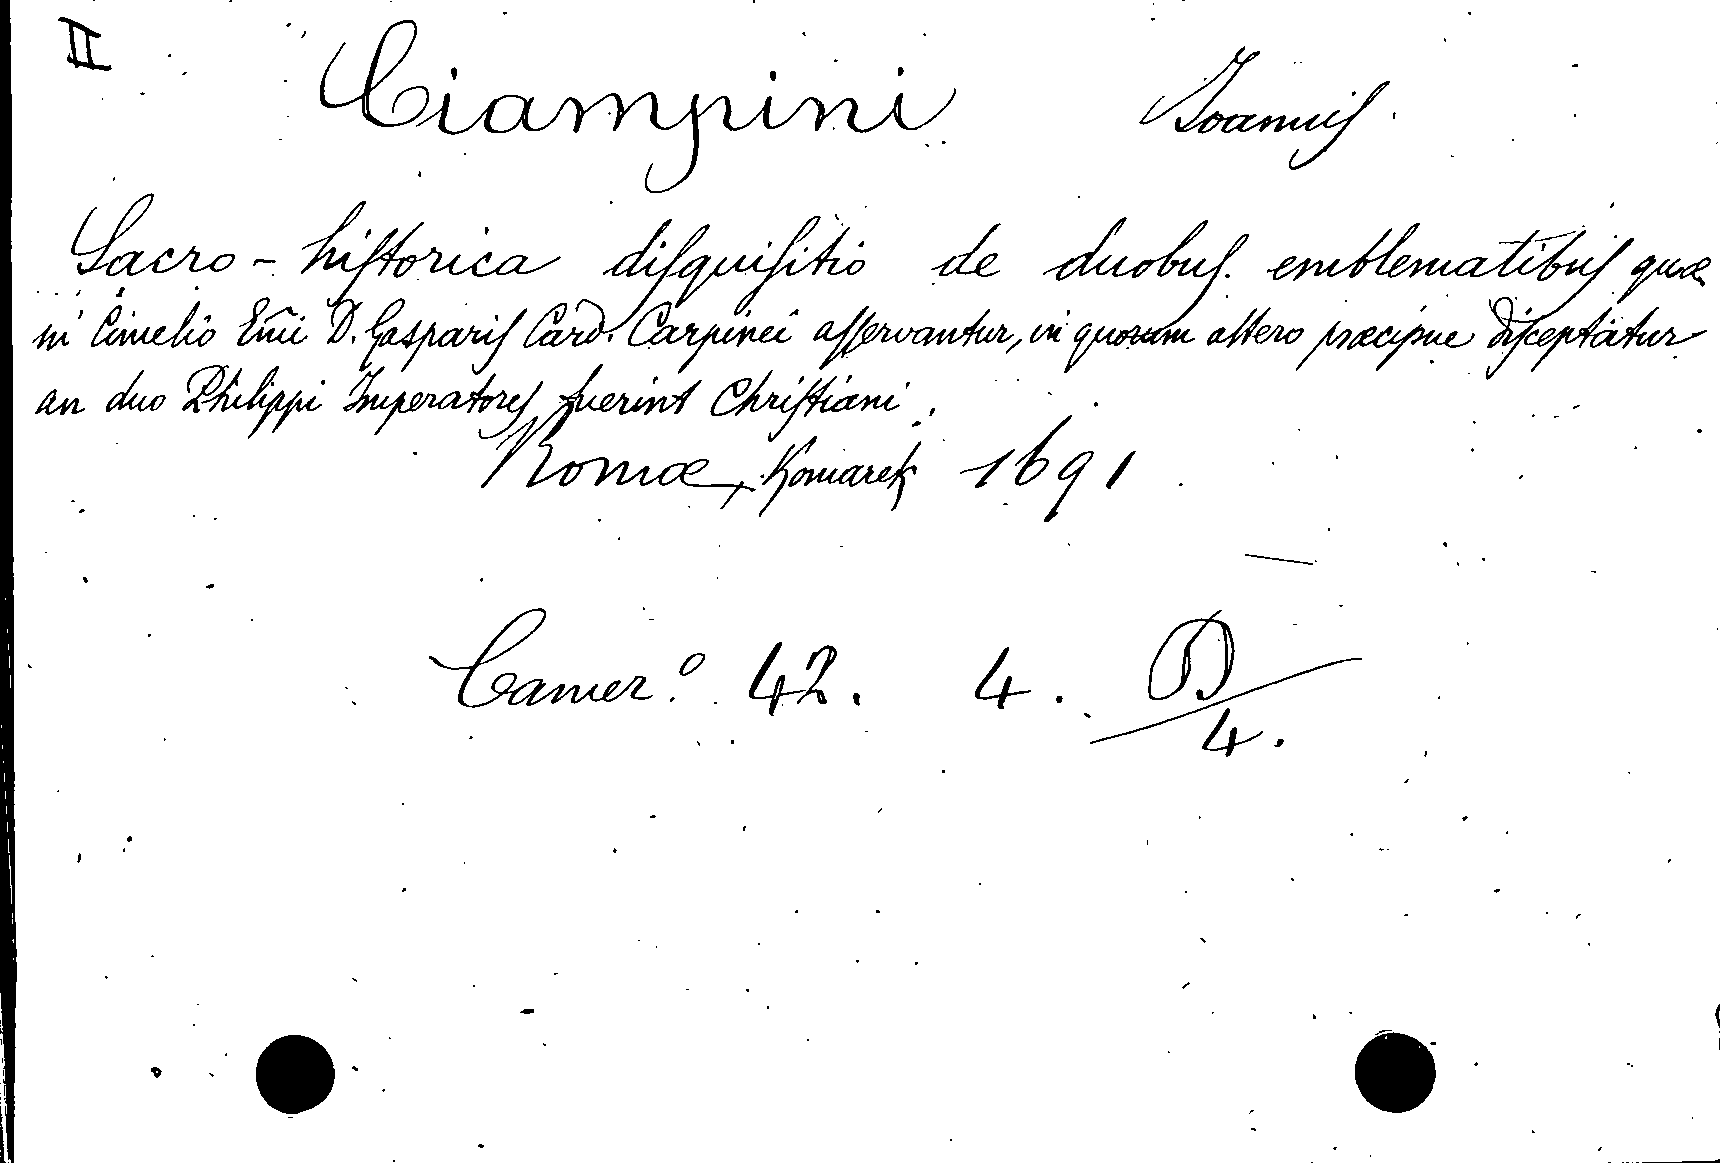 II
Ciampini Joannis
Sacro-historica disquisitio de duobus. emblematibus quæ
in Cimelio Emi D. Gasparis Card. Carpinei asservantur, in quorum altero præcipue disceptatur
an duo Philippi Imperatores fuerint Christiani.
Romæ, Komarek 1691
Camer.º 42. 4. B/4.